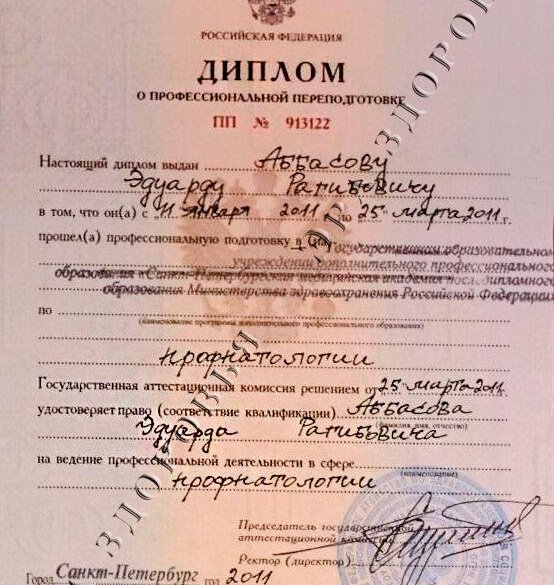 РОССИЙСКАЯ ФЕДЕРАЦИЯ
ДИПЛОМ
О ПРОФЕССИОНАЛЬНОЙ ПЕРЕПОДГОТОВКЕ
ПП № 913122
Настоящий диплом выдан Аббасову
Эдуарду Ратибовичу
в том, что он(а) с 11 января 2011 по 25 марта 2011 г.
прошел(а) профессиональную подготовку в (на) Государственном образовательном
учреждении дополнительного профессионального
образования «Санкт-Петербургская медицинская академия последипломного
образования Министерства здравоохранения Российской Федерации
по
(наименование программы дополнительного профессионального образования)
профпатологии
Государственная аттестационная комиссия решением от 25 марта 2011
удостоверяет право (соответствие квалификации) Аббасова
(фамилия, имя, отчество)
Эдуарда Ратибовича
на ведение профессиональной деятельности в сфере
(наименование)
профпатологии
Председатель государственной
аттестационной комиссии
Ректор (директор)
Город Санкт-Петербург год 2011
ЗДОРОВЬЯ